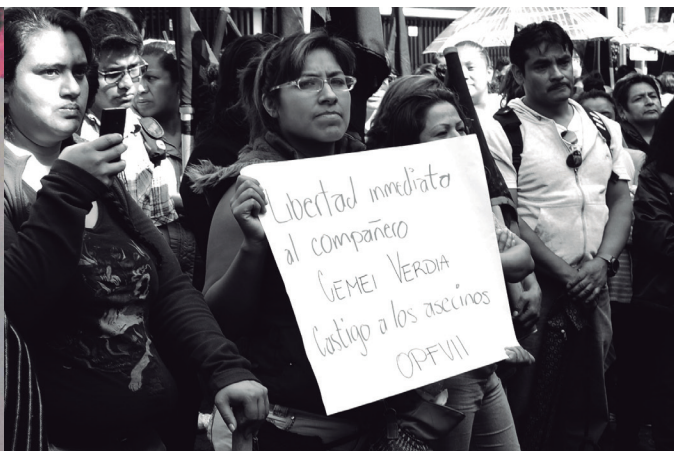 Libertad inmediata
al compañero
CEMEI VERDIA
Castigo a los asecinos
OPFVII